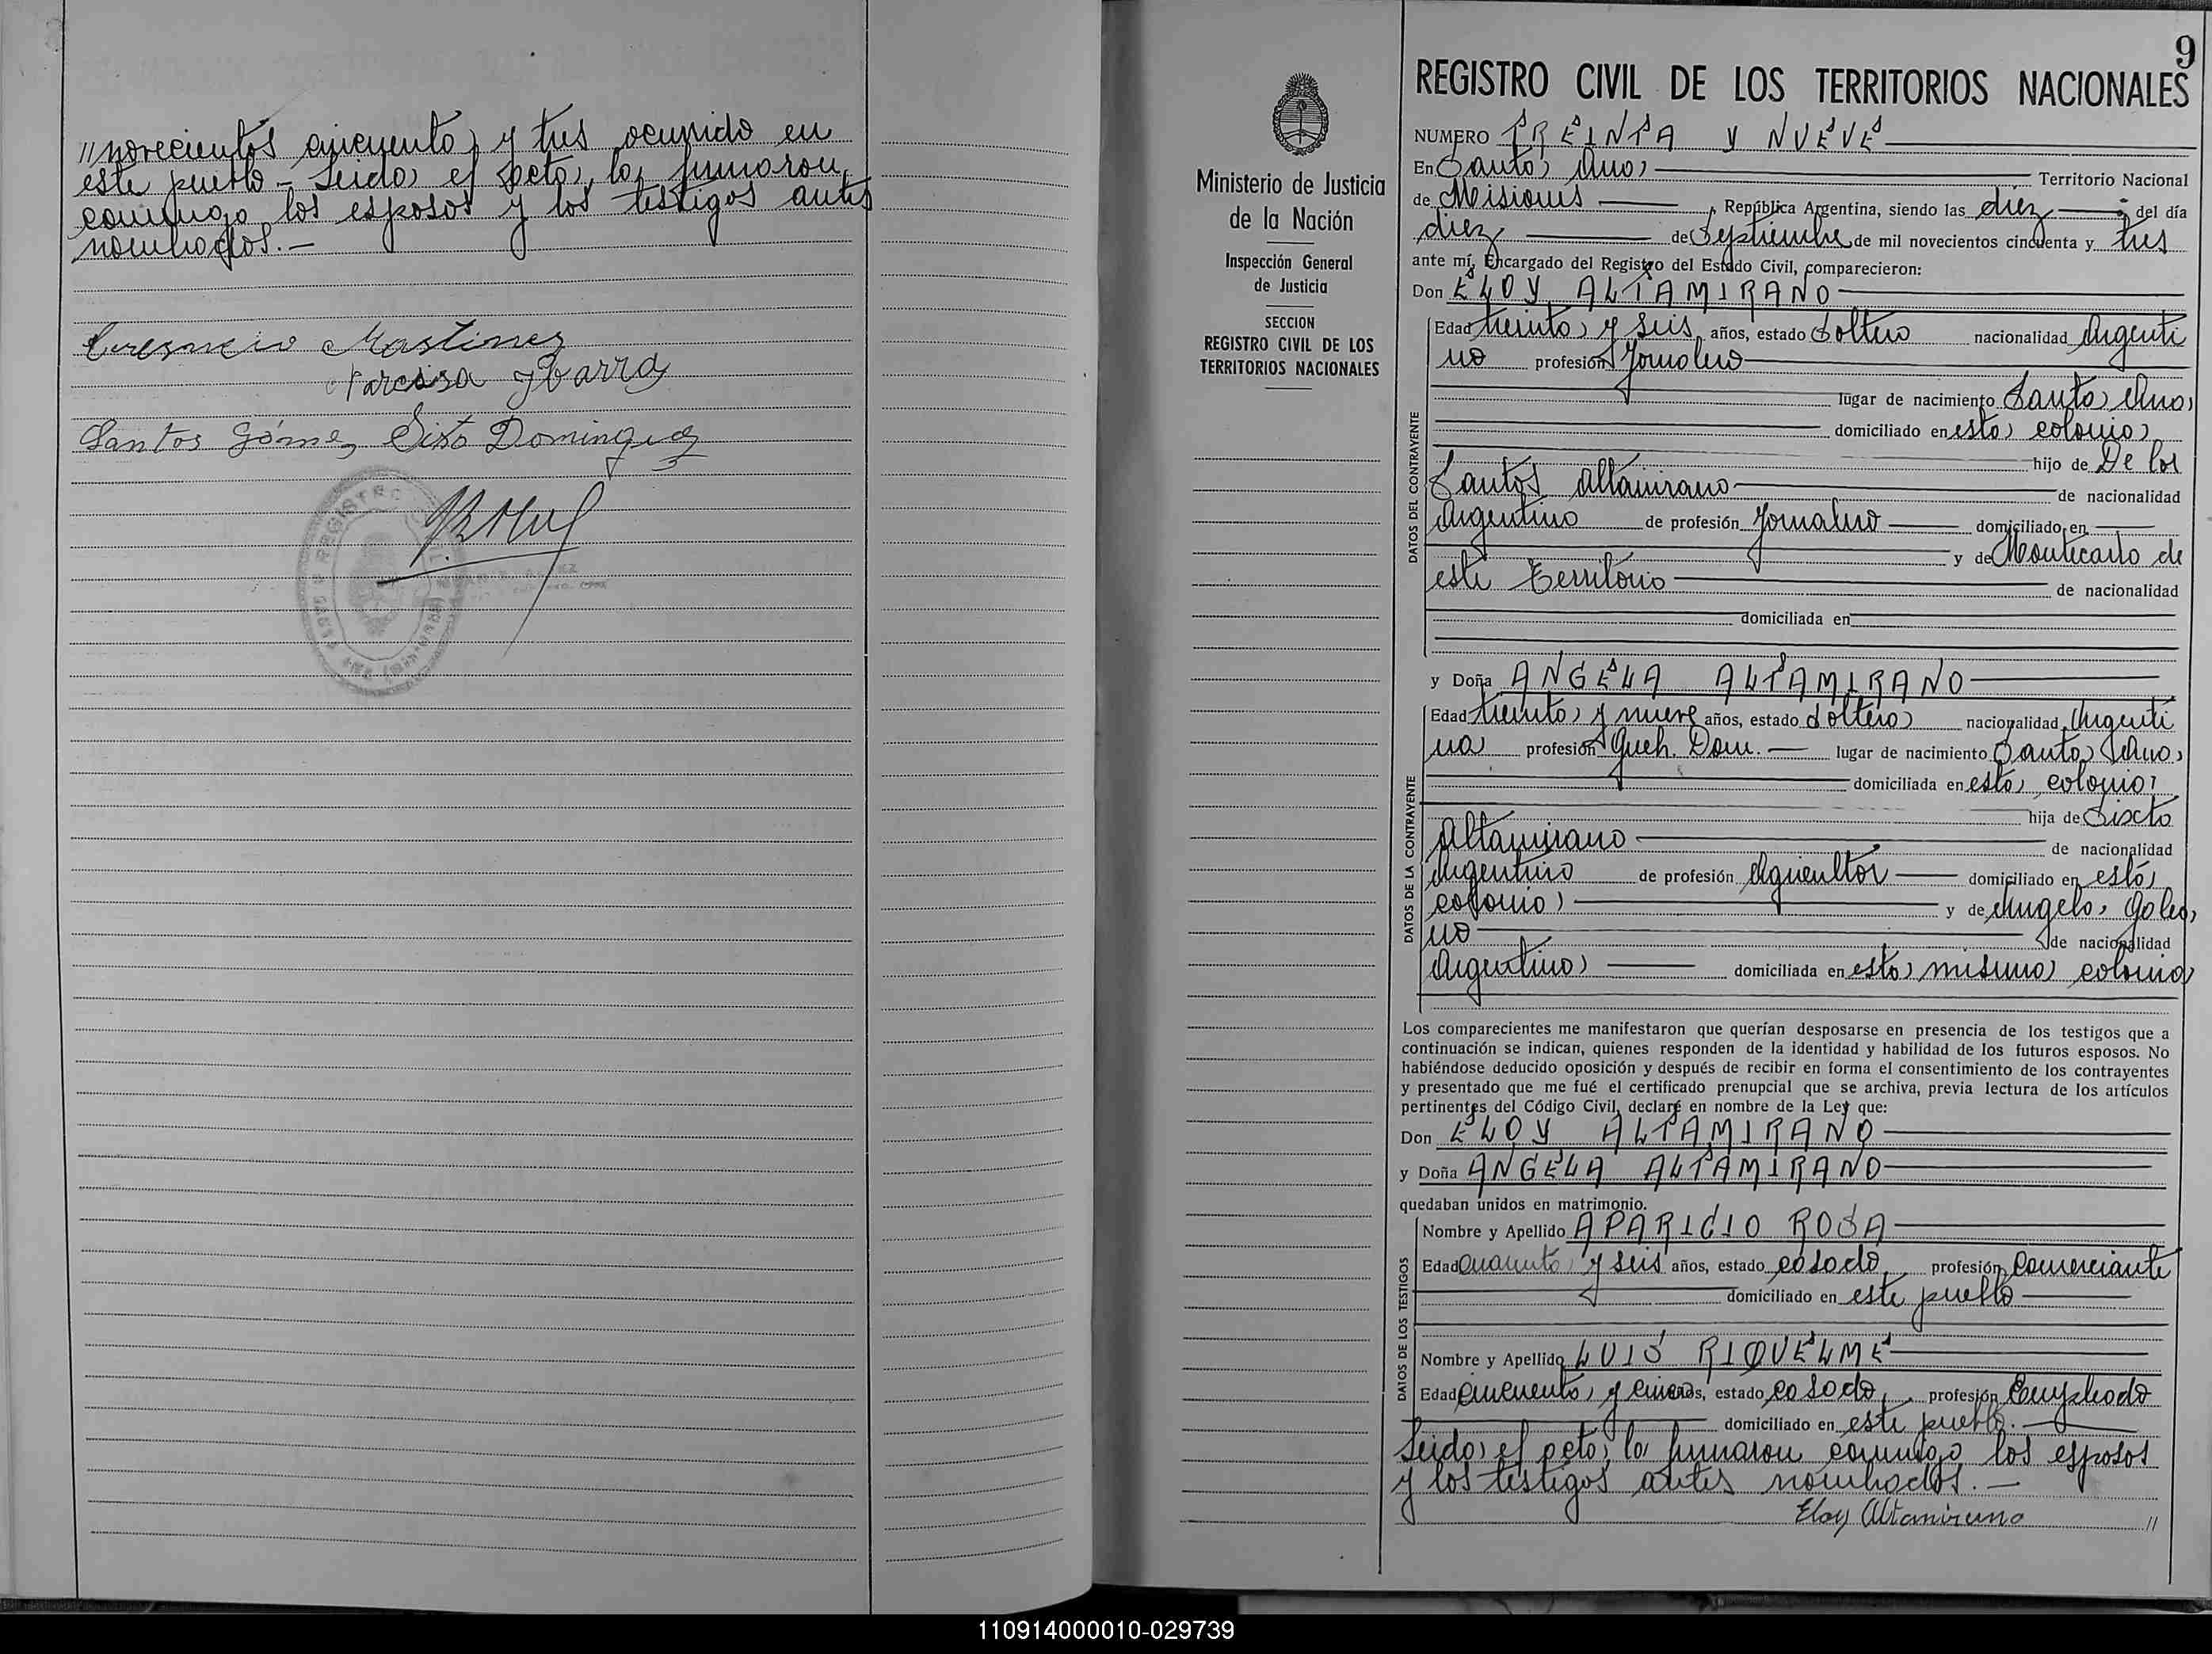 // novecientos cincuenta y tres ocurrido en
este pueblo - Leida el acta, la firmaron
conmigo los esposos y los testigos antes
nombrados.-
Martinez
Narcisa Ybarra
Santos Gómez Sixto Dominguez
9
REGISTRO CIVIL DE LOS TERRITORIOS NACIONALES
Ministerio de Justicia
de la Nación
Inspección General
de Justicia
SECCION
REGISTRO CIVIL DE LOS
TERRITORIOS NACIONALES
NUMERO TREINTA Y NUEVE
En Santa Ana, Territorio Nacional
de Misiones, República Argentina, siendo las diez del día
diez de Septiembre de mil novecientos cincuenta y tres
ante mí, Encargado del Registro del Estado Civil, comparecieron:
Don ELOY ALTAMIRANO
DATOS DEL CONTRAYENTE
Edad treinta y seis años, estado soltero nacionalidad Argenti
no profesión Jornalero
lugar de nacimiento Santa Ana,
domiciliado en esta colonia
hijo de De los
Santos Altamirano de nacionalidad
Argentino de profesión Jornalero domiciliado en
y de Montecarlo de
este Territorio de nacionalidad
domiciliada en
y Doña ANGELA ALTAMIRANO
DATOS DE LA CONTRAYENTE
Edad treinta y nueve años, estado soltera nacionalidad Argenti
na profesión Queh. Dom. - lugar de nacimiento Santa Ana,
domiciliada en esta colonia
hija de Sixto
Altamirano de nacionalidad
Argentino de profesión Agricultor domiciliado en esta
colonia y de Angela Galea
no de nacionalidad
Argentina domiciliada en esta misma colonia
Los comparecientes me manifestaron que querían desposarse en presencia de los testigos que a
continuación se indican, quienes responden de la identidad y habilidad de los futuros esposos. No
habiéndose deducido oposición y después de recibir en forma el consentimiento de los contrayentes
y presentado que me fué el certificado prenupcial que se archiva, previa lectura de los artículos
pertinentes del Código Civil, declaré en nombre de la Ley que:
Don ELOY ALTAMIRANO
y Doña ANGELA ALTAMIRANO
quedaban unidos en matrimonio.
DATOS DE LOS TESTIGOS
Nombre y Apellido APARICIO ROSA
Edad cuarenta y seis años, estado casado profesión comerciante
domiciliado en este pueblo
Nombre y Apellido LUIS RIQUELME
Edad cincuenta y cinco años, estado casado, profesión Empleado
domiciliado en este pueblo.
Leida el acta, la firmaron conmigo los esposos
y los testigos antes nombrados.-
Eloy Altamirano //
110914000010-029739